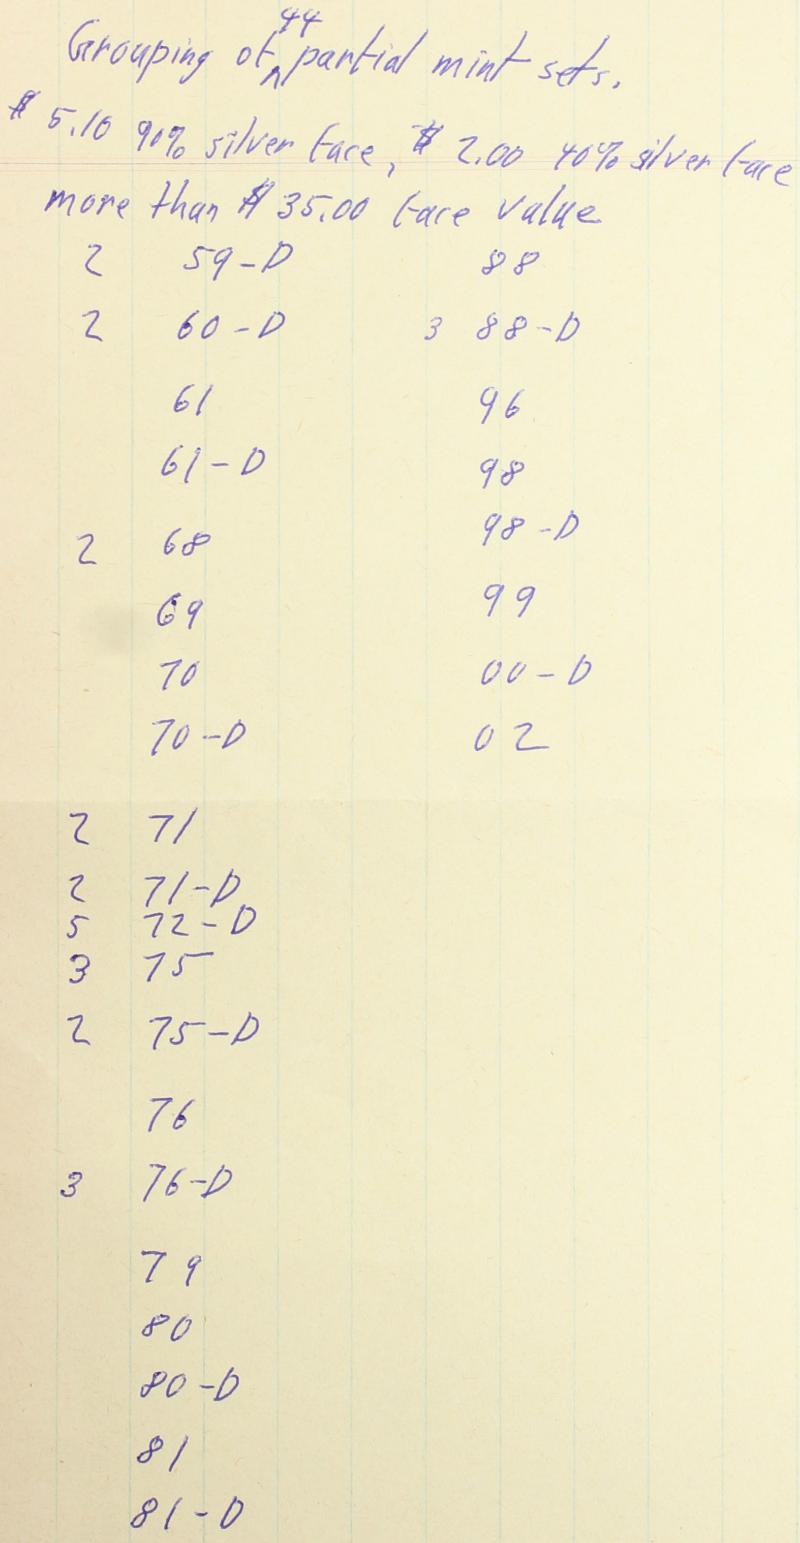 44
Grouping of ^ partial mint sets.
$ 5.10 90% silver face, $ 2.00 40% silver face
more than $ 35.00 face value
2 59-D
2 60-D
61
61-D
2 68
69
70
70-D
2 71
2 71-D
5 72-D
3 75
2 75-D
76
3 76-D
79
80
80-D
81
81-D
88
3 88-D
96
98
98-D
99
00-D
02